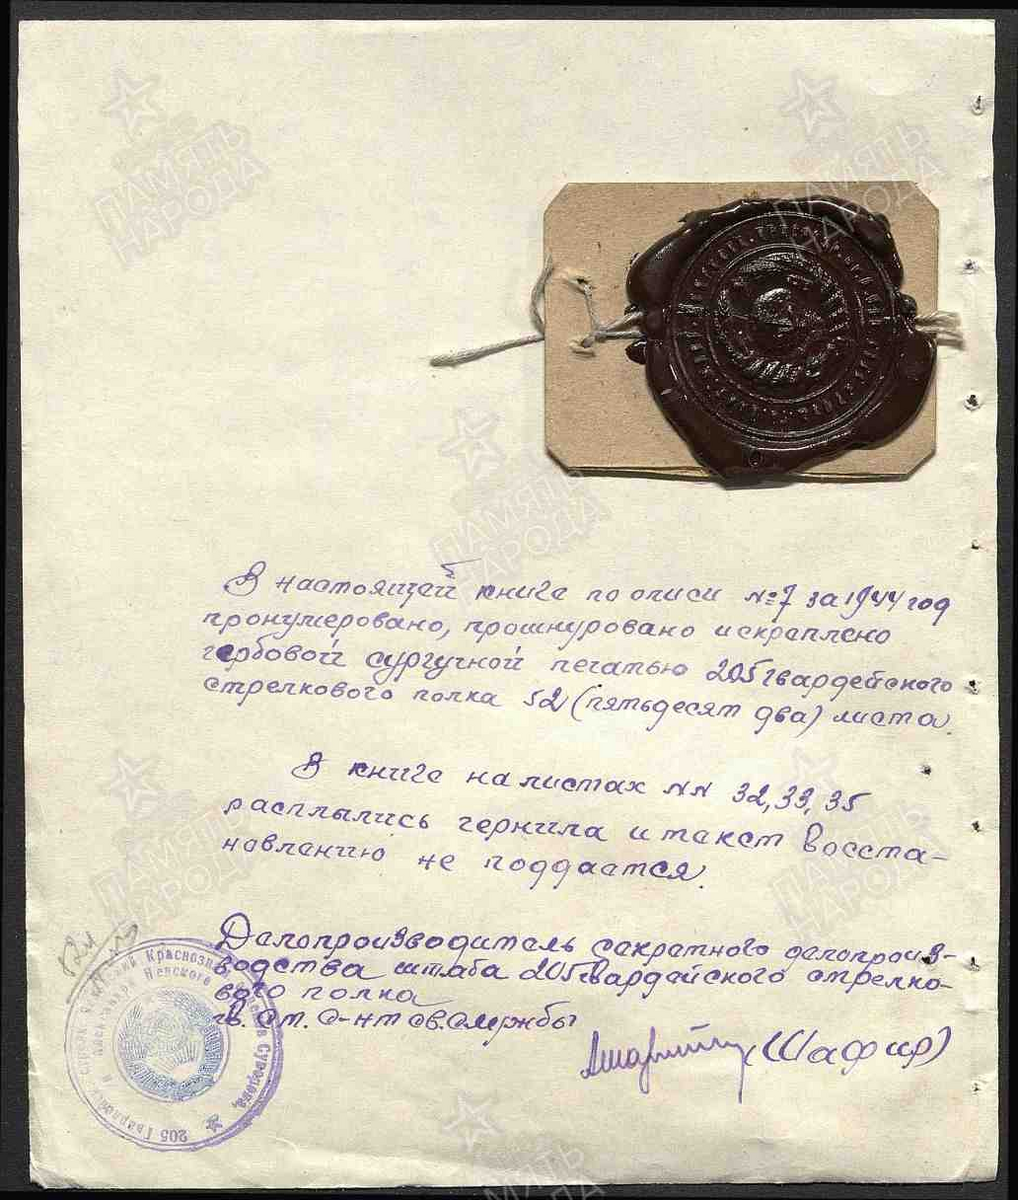 ПАМЯТЬ
НАРОДА
ПАМЯТЬ
НАРОДА
ПАМЯТЬ
НАРОДА
В настоящей книге по описи №7 за 1944 год
пронумеровано, прошнуровано и скраплено
гербовой сургучной печатью 205 гвардейского
стрелкового полка 52 (пятьдесят два) листа
В книге на листах NN 32, 33, 35
расплылись чернила и текст восста-
навлению не поддается.
Делопроизводитель секретного делопроиз-
водства штаба 205 гвардейского стрелко-
вого полка
гв. ст. с-нт св. службы
(Шафир)
205 Гвардей стрелк Краснозн Суворова,
и Александра Невского
ПАМЯТЬ
НАРОДА
ПАМЯТЬ
НАРОДА
ПАМЯТЬ
НАРОДА